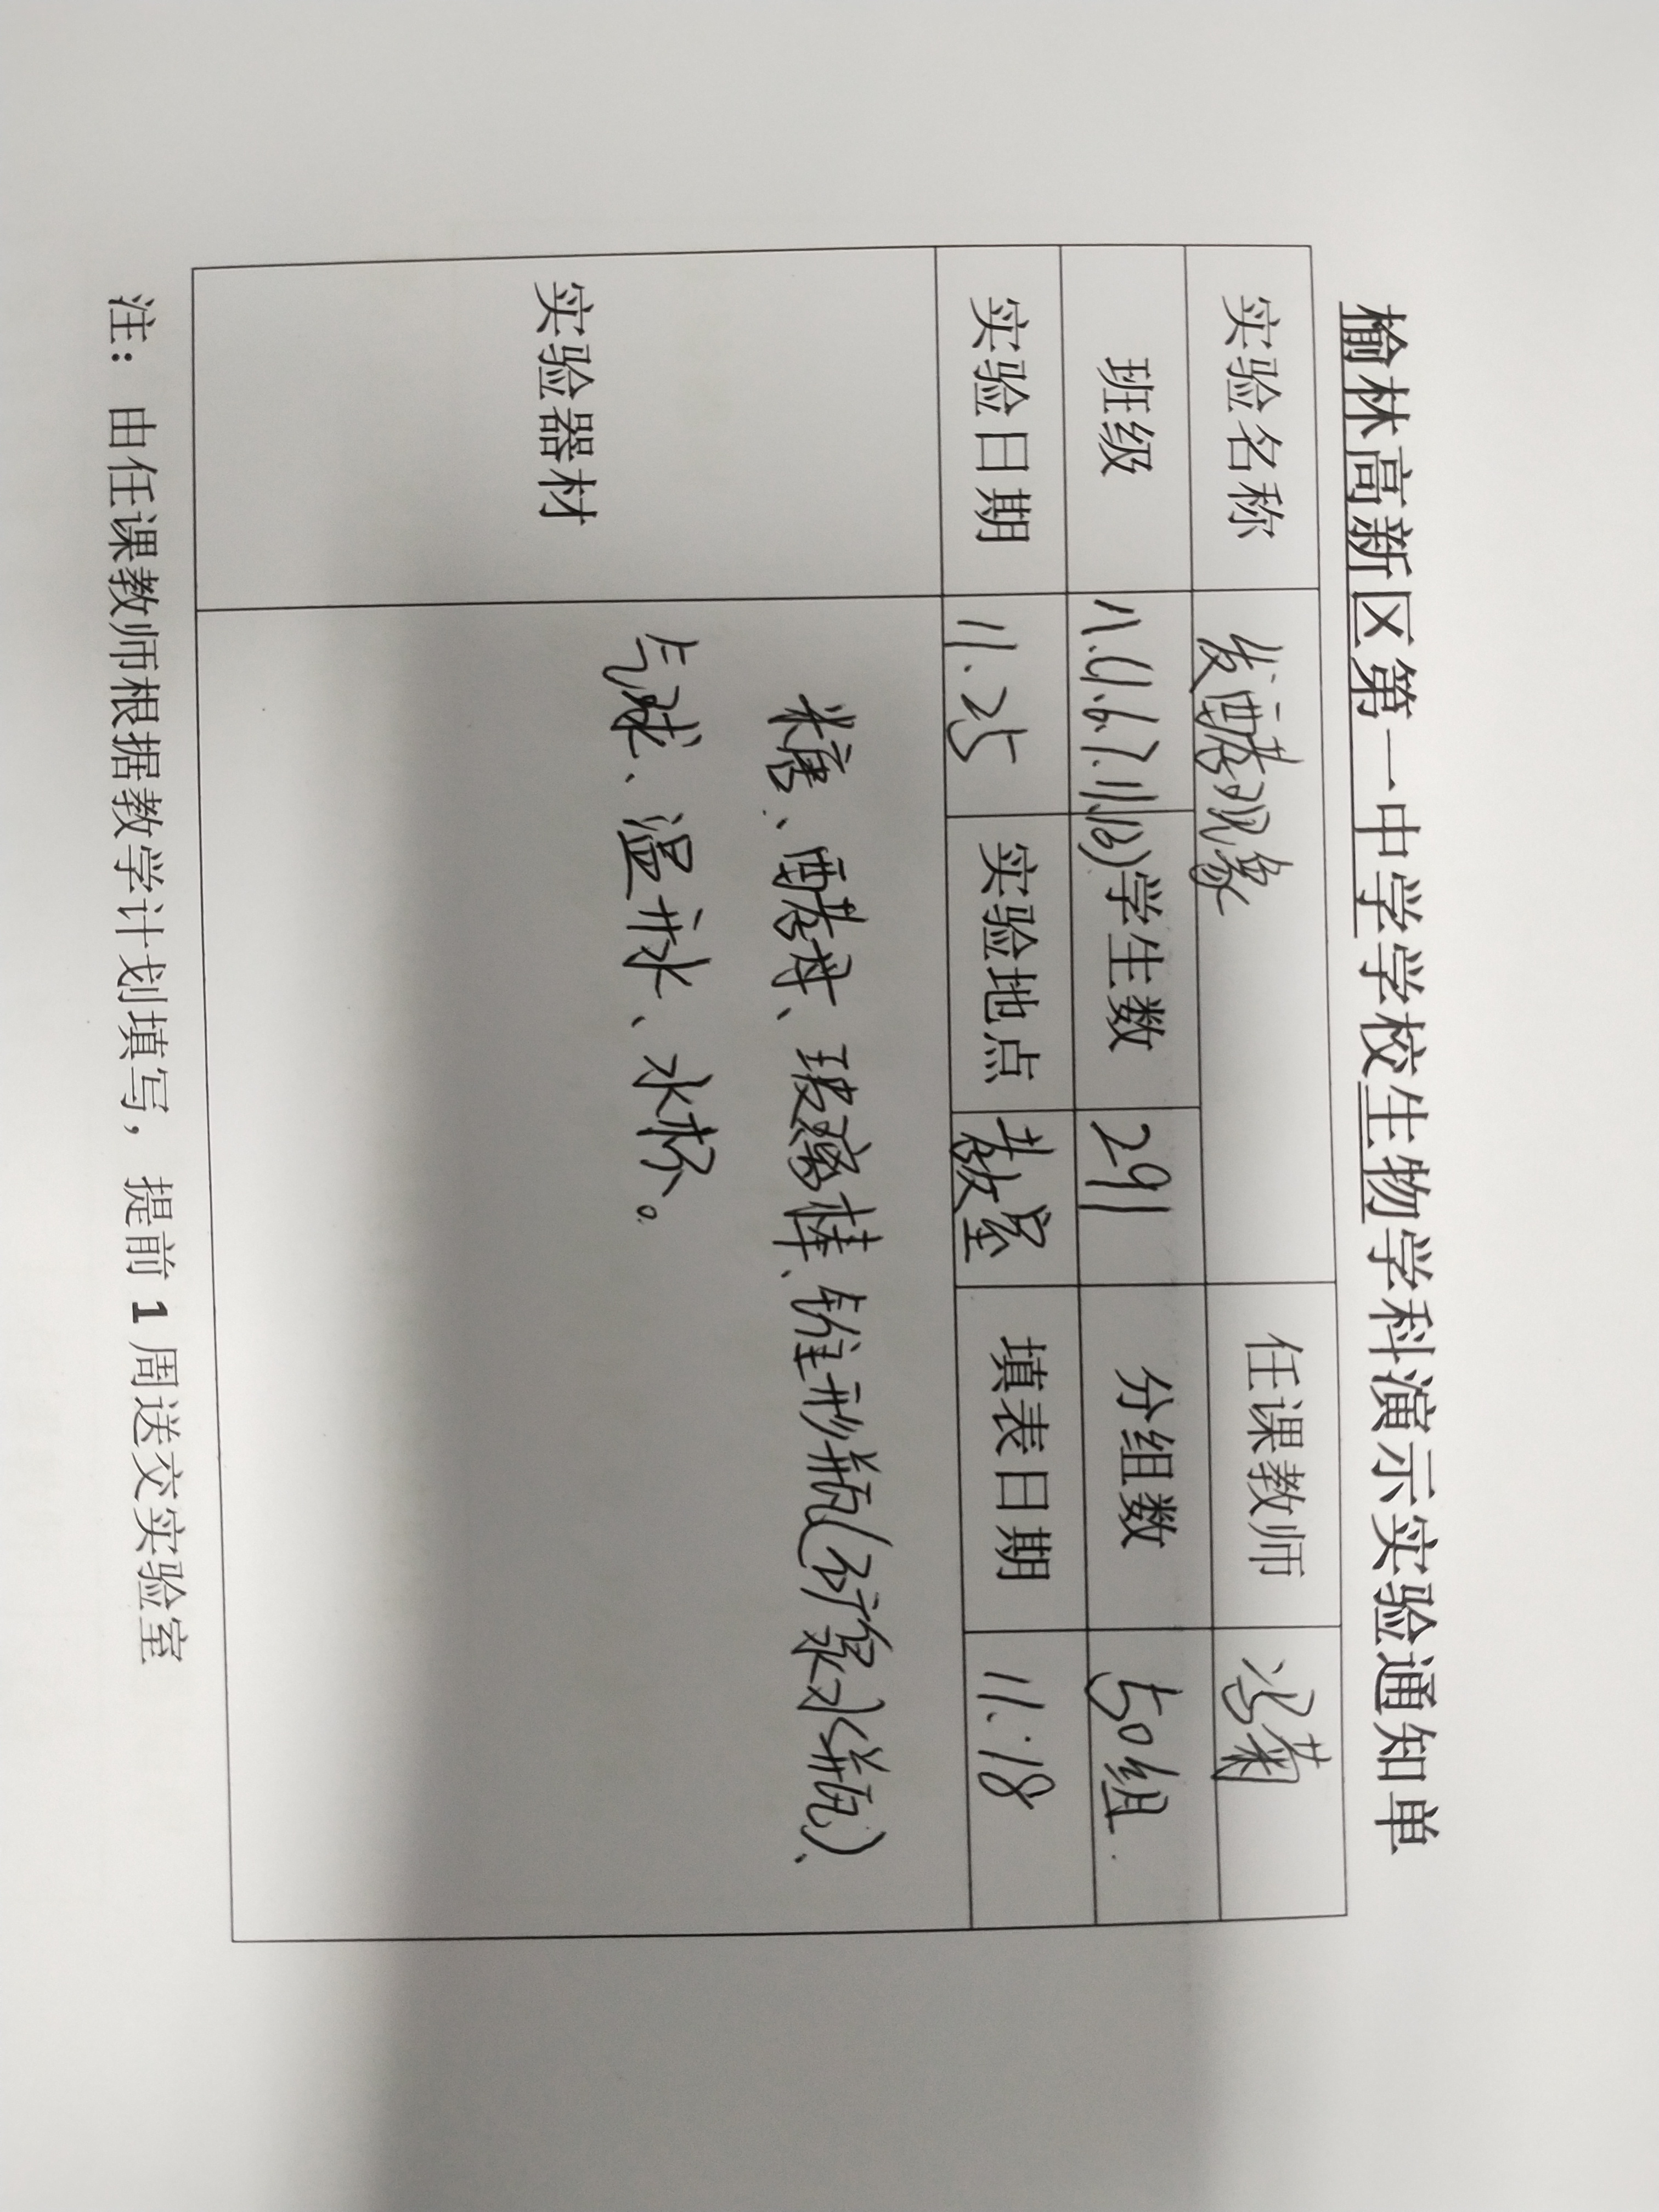 榆林高新区第一中学学校生物学科演示实验通知单
实验名称 发酵现象 任课教师 冯菊
班级 学生数 291 分组数 50组
实验日期 11.25 实验地点 教室 填表日期 11.18
实验器材
糖、酵母、玻璃棒、锥形瓶(矿泉水瓶)、
气球、温开水、水杯。
注：由任课教师根据教学计划填写，提前 1 周送交实验室